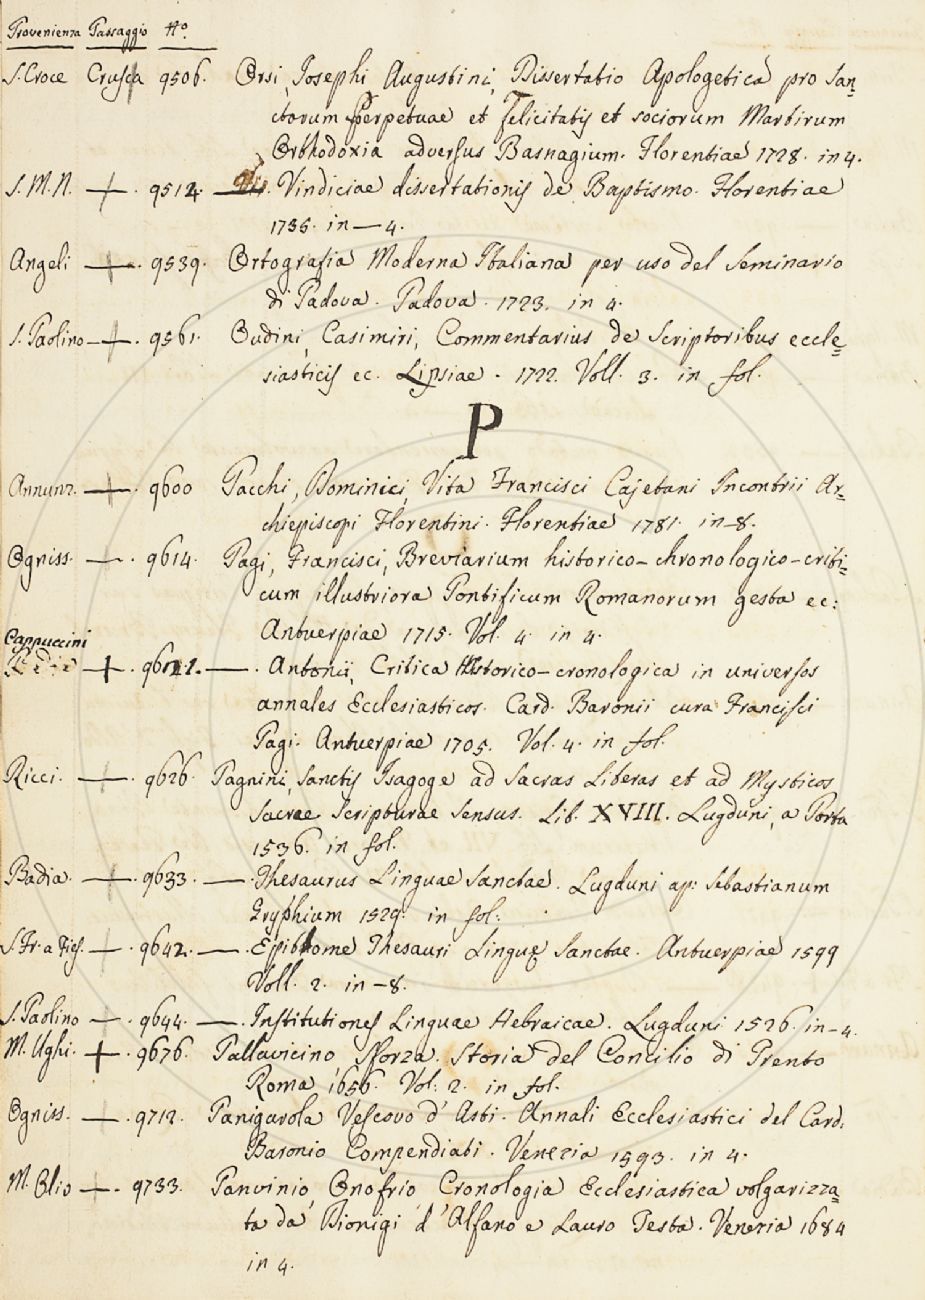 Provenienza Passaggio N.o
S. Croce Crusca 9506. Orsi, Josephi Augustini, Dissertatio Apologetica pro San=
ctorum Perpetuae et Felicitatis et sociorum Martirum
Orthodoxia adversus Basnagium. Florentiae 1728. in 4.
S. M. N. — 9512. — Vindiciae dissertationis de Baptismo. Florentiae
1735. in — 4.
Angeli — 9539. Ortografia Moderna Italiana per uso del Seminario
di Padova. Padova. 1723. in 4.
S. Paolino — 9561. Oudini, Casimiri, Commentarius de Scriptoribus eccle=
siasticis ec. Lipsiae. 1722. Voll. 3. in fol.
P
Annunz. — 9600 Pacchi, Dominici, Vita Francisci Cajetani Incontrii Ar=
chiepiscopi Florentini. Florentiae 1781. in — 8.
Ogniss. — 9614. Pagi, Francisci, Breviarium historico-chronologico-criti=
cum illustriora Pontificum Romanorum gesta ec:
Antuerpiae 1715. Vol. 4. in 4.
Cappuccini
— — . Antonii, Critica Historico-cronologica in universos
annales Ecclesiasticos. Card. Baronii cura Francisci
Pagi. Antuerpiae 1705. Vol. 4. in fol.
Ricci. — 9626. Pagnini, Sanctis Isagoge ad Sacras Liberas et ad Mysticos
Sacrae Scripturae Sensus. Lib. XVIII. Lugduni, a Porta
1536. in fol.
Badia. — 9633. — . Thesaurus Linguae Sanctae. Lugduni ap: Sebastianum
Gryphium 1529. in fol.
S. Fr. a Fies. — 9642. — . Epithome Thesauri Linguę Sanctae. Antuerpiae 1599
Voll. 2. in — 8.
S. Paolino — 9644. — . Institutiones Linguae Hebraicae. Lugduni 1526. in — 4.
M. Ughi. — 9676. Pallavicino Sforza. Storia del Concilio di Trento
Roma 1656. Vol: 2. in fol.
Ogniss. — 9712. Panigarola Vescovo d' Asti. Annali Ecclesiastici del Card.
Baronio Compendiati. Venezia 1593. in 4.
M. Olio — 9733. Panvinio, Onofrio Cronologia Ecclesiastica volgarizza=
ta da Dionigi d' Alfano e Lauro Testa. Venezia 1684
in 4.